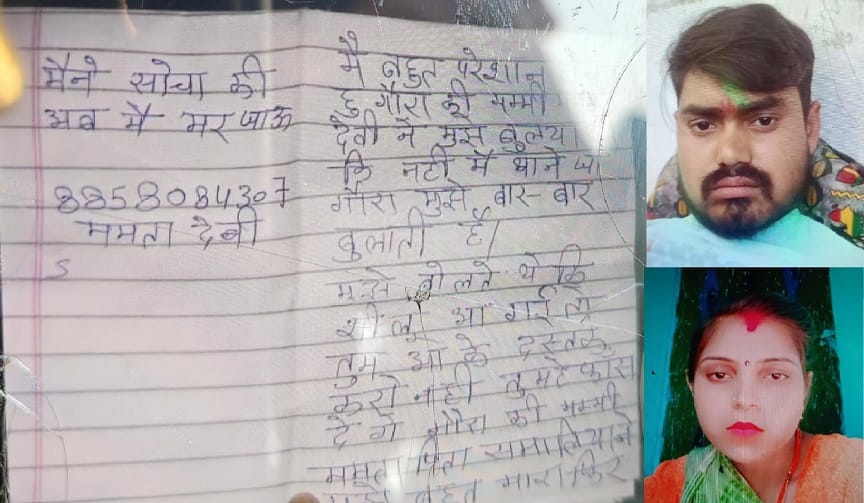 मैने सोचा की
अब मै मर जाऊ
8858084307
ममता देवी
S
मै बहुत परेशान
हु गौरा की मम्मी
देवी ने मुझे बुलया
कि नटी मै थाने
गौरा मुझे बार-बार
बुलाती है।
मुझे बोलते थे कि
शीलू आ गई
तुम आ के दस्तक
करो नही तुमहे
दे गे गौरा की मम्मी
ममता पिता समालिया ने
बहुत मारा फिर